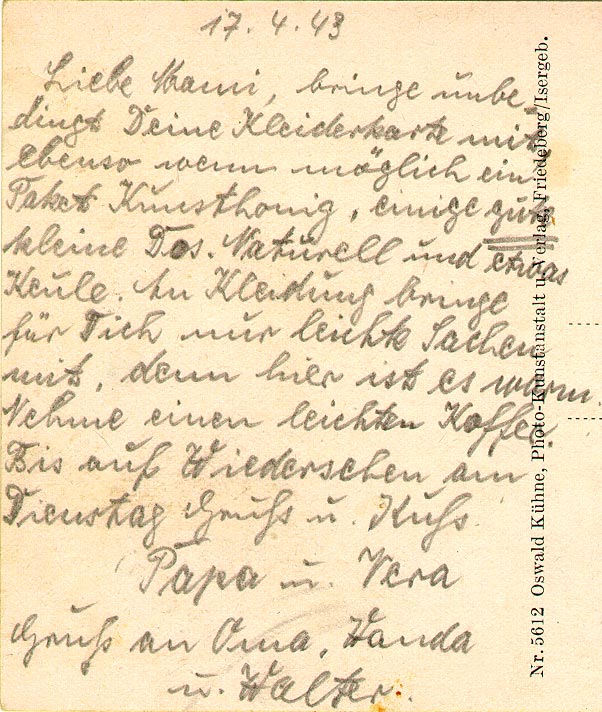 17. 4. 43
Liebe Mami, bringe unbe-
dingt Deine Kleiderkarte mit
ebenso wenn möglich ein
Paket Kunsthonig, einige gute
kleine Dos. Naturell und etwas
Keule. An Kleidung bringe
für Dich nur leichte Sachen
mit, denn hier ist es warm.
Nehme einen leichten Koffer.
Bis auf Wiedersehen am
Dienstag Gruß u. Kuß
Papa u. Vera
Gruß an Oma, Wanda
u. Walter.
Nr. 5612 Oswald Kühne, Photo-Kunstanstalt u. Verlag, Friedeberg/Isergeb.